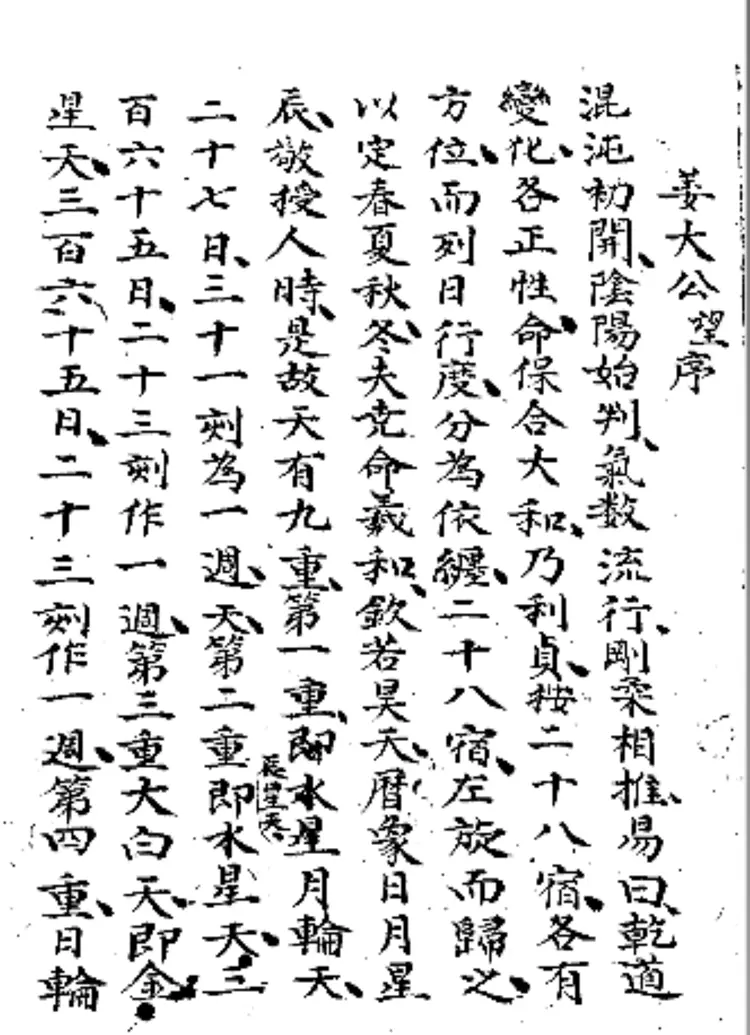 姜大公望序
混沌初開陰陽始判氣数流行剛柔相推易曰乾道
變化各正性命保合大和乃利貞按二十八宿各有
方位而列日行度分為依纏二十八宿左旋而歸之
以定春夏秋冬夫克命羲和欽若昊天曆象日月星
辰敬授人時是故天有九重第一重即水星月輪天
辰星天
二十七日三十一刻為一週天第二重即水星天三
百六十五日二十三刻作一週第三重大白天即金
星天三百六十五日二十三刻作一週第四重日輪